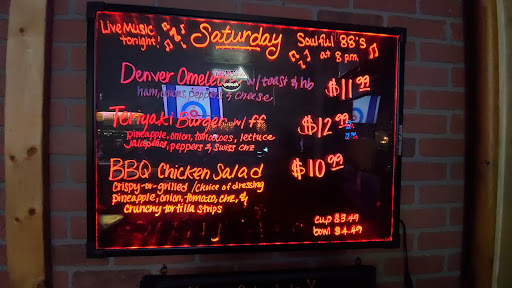 Live Music tonight!
Saturday
Soulful 88's
at 8 pm
Denver Omelette w/ toast & hb $11.99
ham, onions, peppers & cheese
Teriyaki Burger w/ ff $12.99
pineapple, onion, tomatoes, lettuce
jalapenos, peppers & swiss chz
BBQ Chicken Salad $10.99
crispy-or-grilled / choice of dressing
pineapple, onion, tomato, chz, &
crunchy tortilla strips
cup $3.49
bowl $4.49